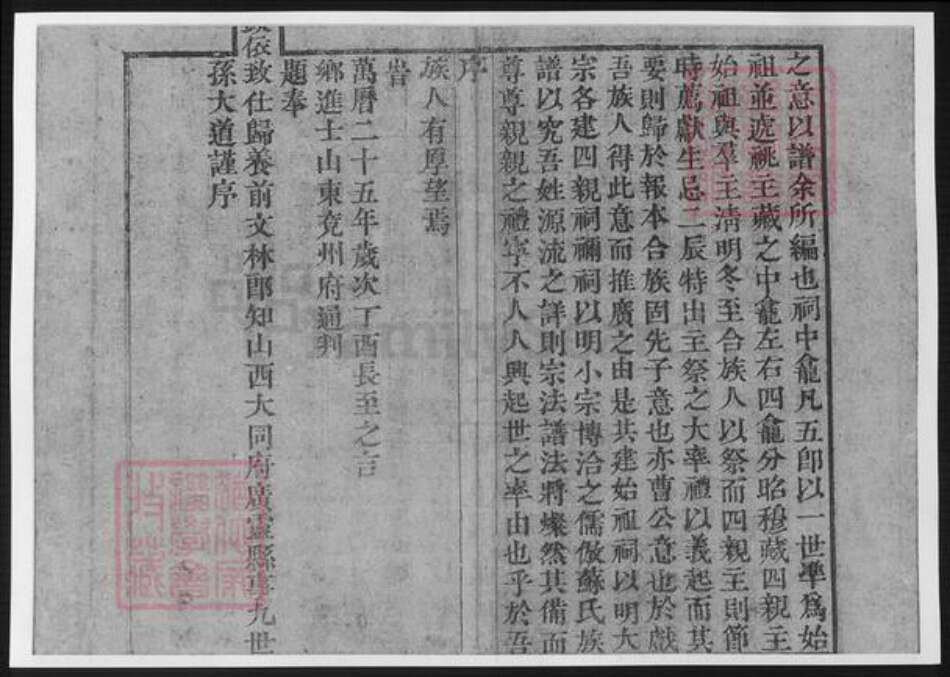 之意以譜余所編也祠中龕凡五卽以一世準爲始
祖並遞祧主藏之中龕左右四龕分昭穆藏四親主
始祖與羣主淸明冬至合族人以祭而四親主則節
時薦獻生忌二辰特出主祭之大率禮以義起而其
要則歸於報本合族固先子意也亦曹公意也於戲
吾族人得此意而推廣之由是共建始祖祠以明大
宗各建四親祠禰祠以明小宗博洽之儒倣蘇氏族
譜以究吾姓源流之詳則宗法譜法將燦然其備而
尊尊親親之禮寧不人人興起世之率由也乎於吾
序
族人有厚望焉
旹
萬曆二十五年歲次丁酉長至之吉
鄉進士山東兖州府通判
題奉
依致仕歸養前文林郎知山西大同府廣靈縣事九世
孫大道謹序